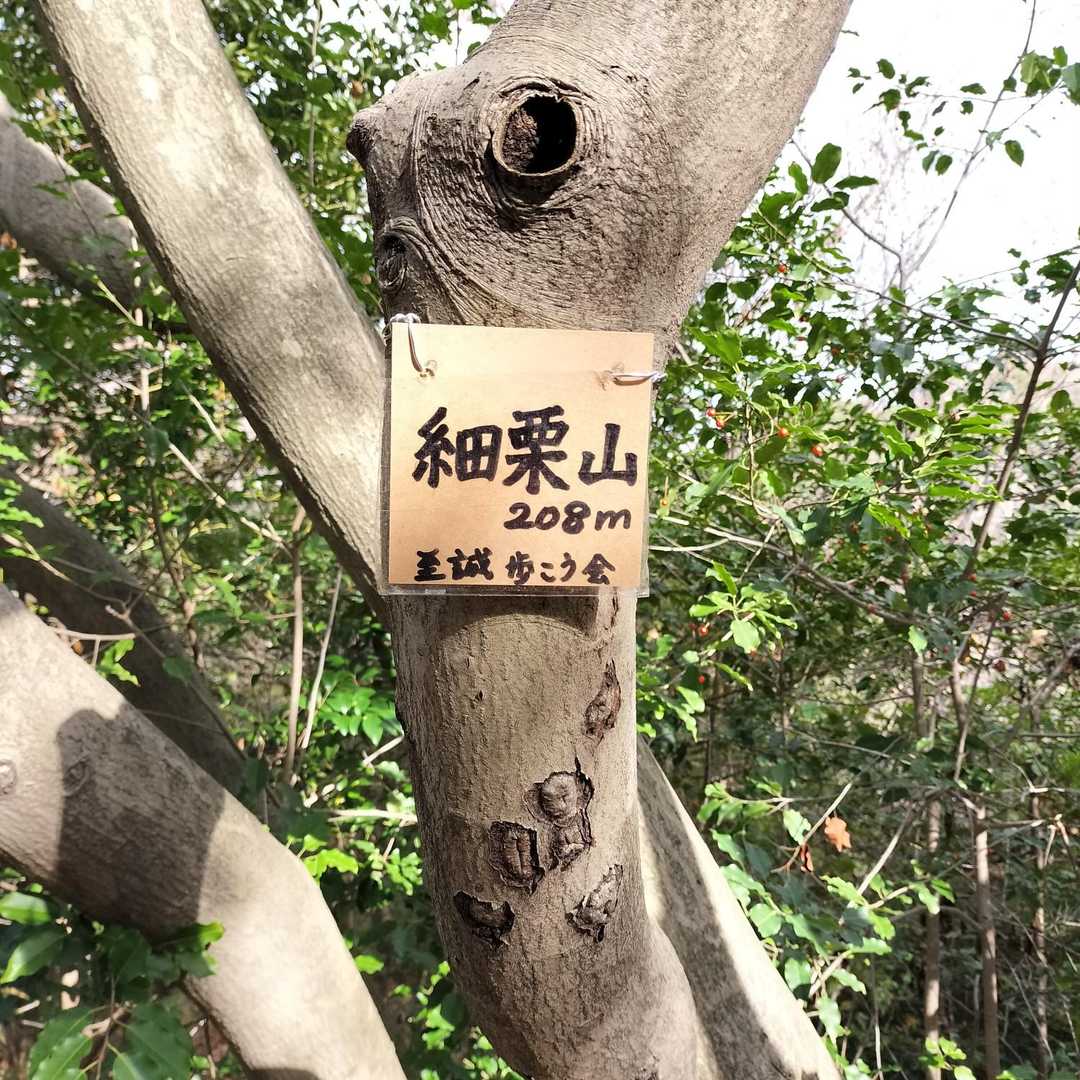 細栗山
208m
至誠歩こう会